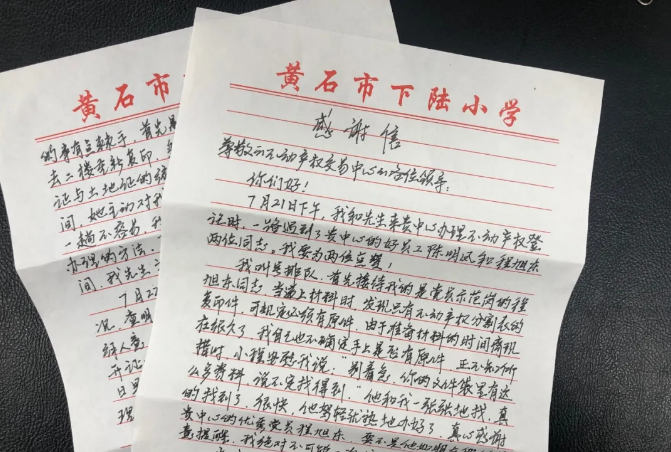 黄石市
的事有点棘手，首先是
去二楼重新复印，
证与土地证的
间，她主动对我
一趟不容易，我
办理的方法，
间，我先生
7月22
况，查明
经人
开证
日里
理
黄石市下陆小学
感谢信
尊敬的不动产权交易中心的各位领导：
你们好！
7月21日下午，我和先生来贵中心办理不动产权登
记时，一路遇到了贵中心的好员工陈明凤和程旭东
两位同志。我要为两位点赞。
我叫号排队，首先接待我的是党员示范岗的程
旭东同志，当递上材料时，发现只有不动产权分割表的
复印件，可规定必须有原件，由于准备材料的时间痛现
在很久了，我自己也不确定手上是否有原件，正不知所
措时，小程安慰我说：“别着急，你的文件袋里有这
么多资料，说不定找得到。”他和我一张张地找，真
的找到了，很快，他驾轻就熟地办好了，真心感谢
贵中心的优秀党员程旭东，要不是他
提醒，我绝对不可能